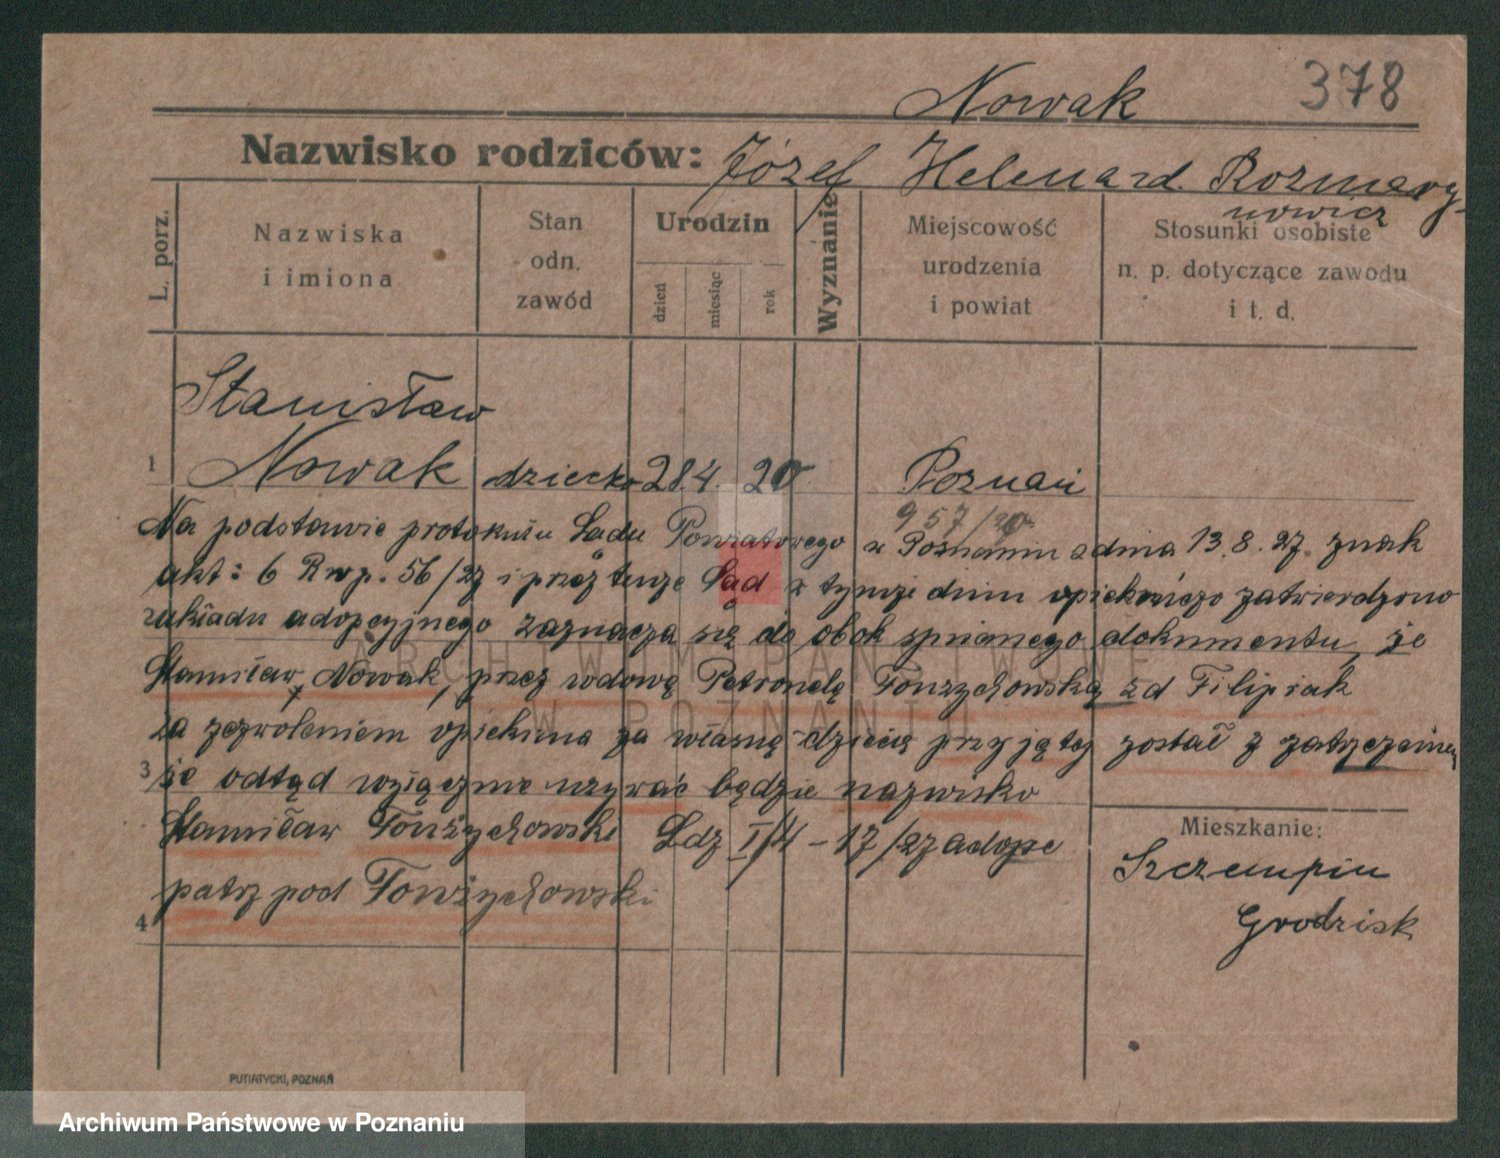 378
Nowak
Nazwisko rodziców: Józef Helena zd. Rozmary-
nowicz
L. porz.
Nazwiska
i imiona
Stan
odn.
zawód
Urodzin
dzień
miesiąc
rok
Wyznanie
Miejscowość
urodzenia
i powiat
Stosunki osobiste
n. p. dotyczące zawodu
i t. d.
Stanisław
1 Nowak dziecko 28.4. 20 Poznań
957/20
Na podstawie protokułu Sądu Powiatowego w Poznaniu z dnia 13.8.27. znak
akt: 6 Rwp. 56/27 i przez tenże Sąd w tymże dniu opiekuńczo zatwierdzono
układu adopcyjnego zaznacza się do obok spisanego dokumentu, że
Stanisław Nowak, przez wdowę Petronelę Towrzychowską zd Filipiak
za zezwoleniem opiekuna za własne dziecię przyjętej został z
3 że odtąd wyłącznie używać będzie nazwisko
Stanisław Ldz I/4 - 17/27 adopc
patrz pod
4
Mieszkanie:
Szczempin
Grodzisk
PUTIATYCKI, POZNAŃ
ARCHIWUM PAŃSTWOWE
W POZNANIU
Archiwum Państwowe w Poznaniu